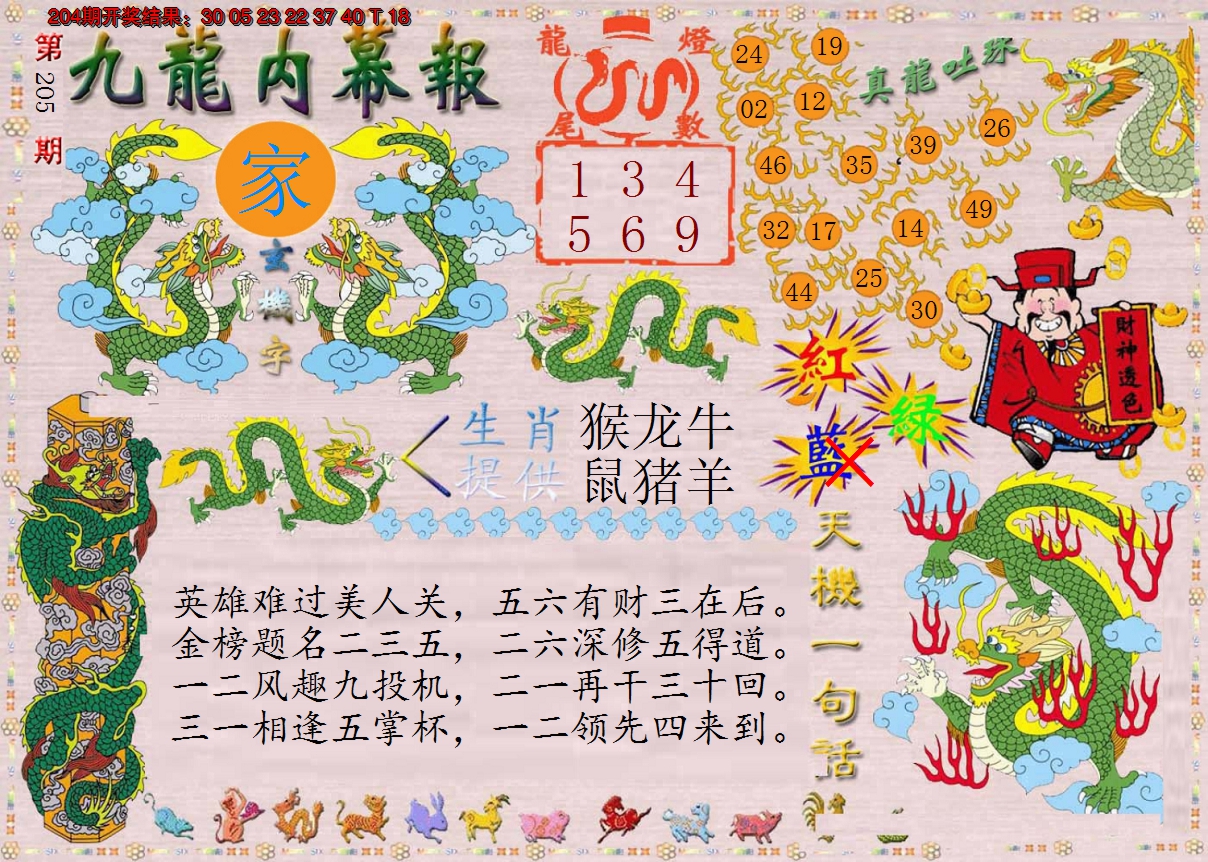 204期开奖结果：30 05 23 22 37 40 T 18
第205期
九龍内幕報
家
玄機字
龍燈尾數
1 3 4
5 6 9
真龍吐珠
24 19
02 12
26
39
46 35
49
14
32 17
25
44
30
財神透色
紅
綠
藍
生肖 猴龙牛
提供 鼠猪羊
天機一句話
英雄难过美人关，五六有财三在后。
金榜题名二三五，二六深修五得道。
一二风趣九投机，二一再干三十回。
三一相逢五掌杯，一二领先四来到。